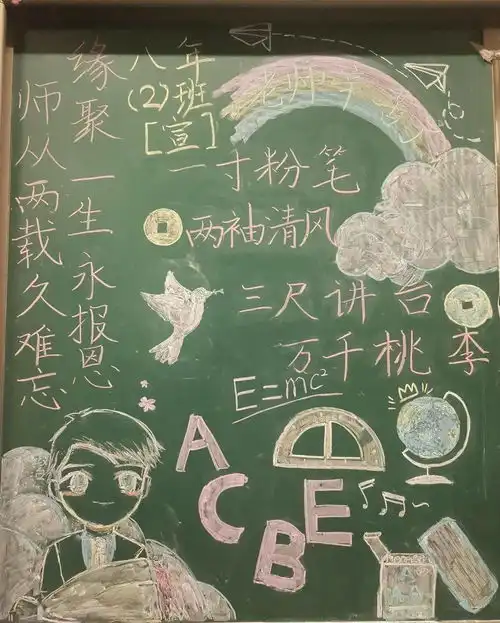 八年
(2)班
[宣]
缘聚一生永报恩
师从两载久难忘
一寸粉笔
两袖清风
三尺讲台
万千桃李
E=mc²
A
C
B
E